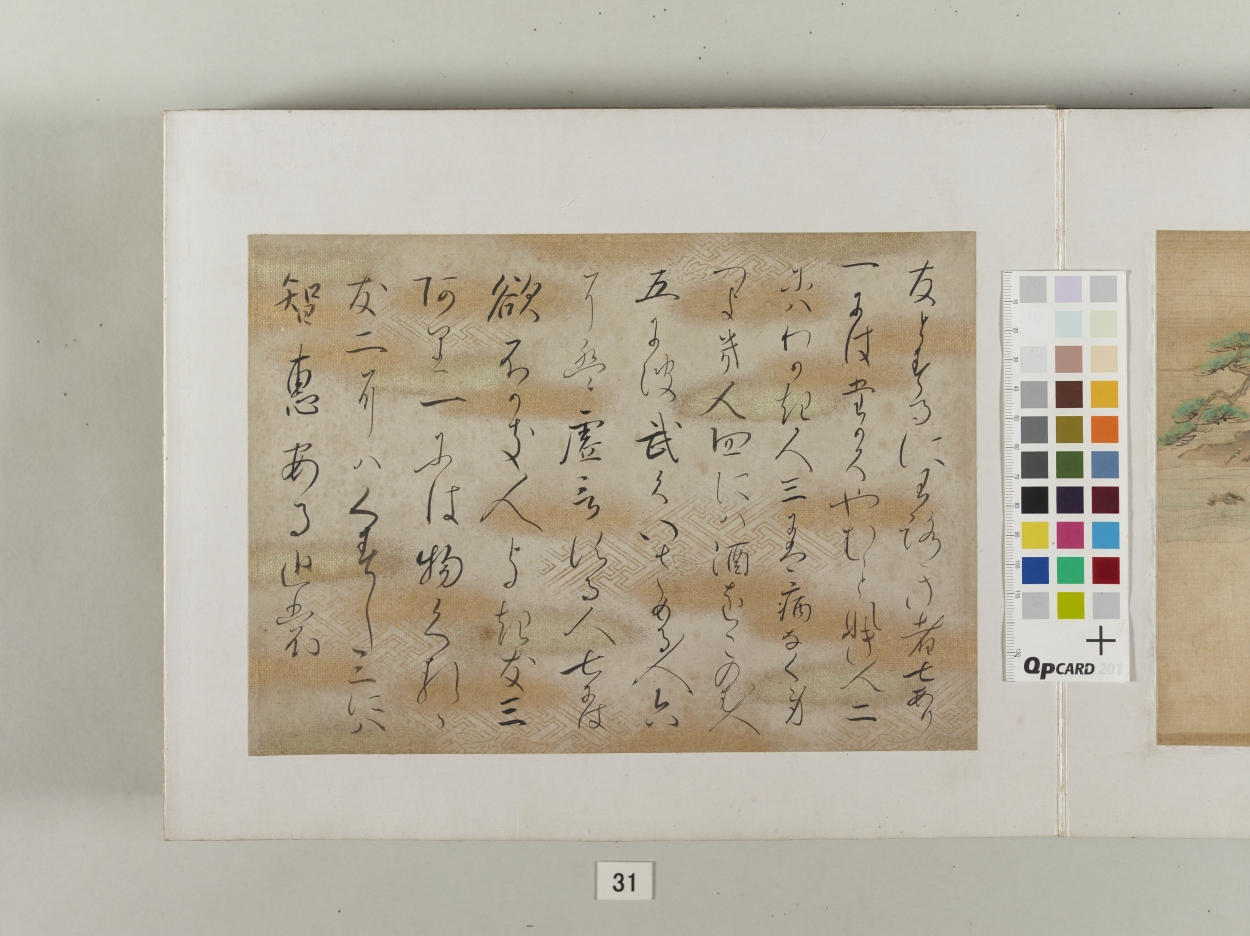 友とするにわろき者七あり
一には高くやむことなき人二
にはわかき人三には病なく身
つよき人四には酒をこのむ人
五にはたけくいさめる人六
には虚言する人七には
欲ふかき人よき友三
あり一には物くるゝ
友二にはくすし三には
智恵ある友
31
QPCARD 201